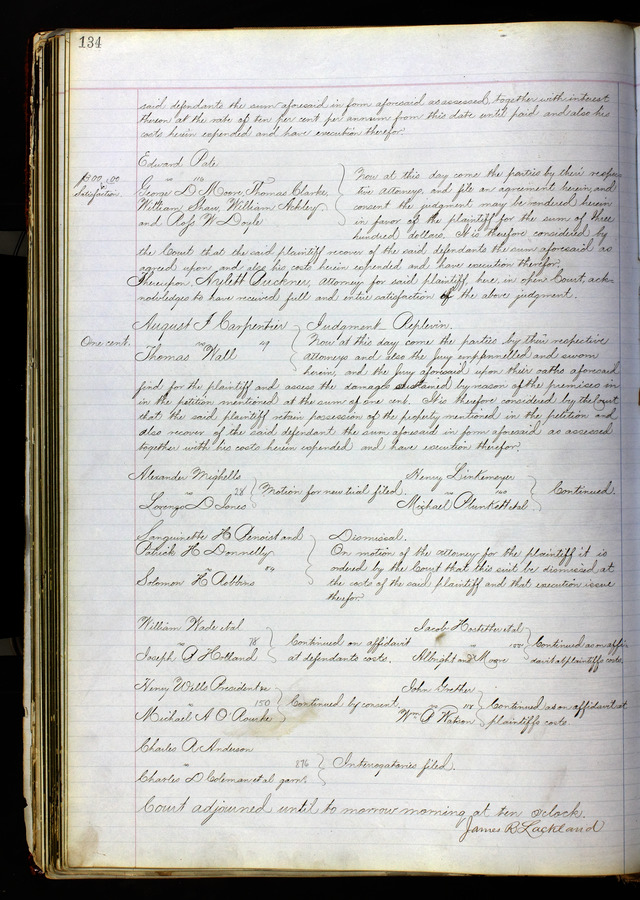 134
said defendants the sum aforesaid in form aforesaid as assessed, together with interest
thereon at the rate of ten per cent per annum from this date until paid and also his
costs herein expended and have execution therefor.
Edward Pale
vs 116
$300.00
Satisfaction
George D Moore, Thomas Clarke,
William Shaw, William Ackley
and Ross W Doyle
Now at this day come the parties by their respec
tive attorneys, and file an agreement herein, and
consent the judgment may be rendered herein
in favor of the plaintiff for the sum of three
hundred dollars. It is therefore considered by
the Court that the said plaintiff recover of the said defendants the sum aforesaid as
agreed upon and also his costs herein expended and have execution therefor.
Thereupon, Buckner, attorney for said plaintiff, here in open Court, ack-
nowledges to have received full and entire satisfaction of the above judgment.
August F Carpentier
One cent.
vs 49
Thomas Wall
Judgment Replevin.
Now at this day come the parties by their respective
attorneys and also the Jury empannelled and sworn
herein, and the Jury aforesaid upon their oaths aforesaid
find for the plaintiff and assess the damage sustained by reason of the premises in
in the petition mentioned at the sum of one cent. It is therefore considered by the Court
that the said plaintiff retain possession of the property mentioned in the petition and
also recover of the said defendant the sum aforesaid in form aforesaid as assessed
together with his costs herein expended and have execution therefor.
Alexander Mighells
vs 28
Lorenzo D Jones
Motion for new trial filed.
Henry Linkemeyer
vs 140
Michael Plunkett et al
Continued.
Sanguinette H Benoist and
Patrick H Donnelly
vs 54
Solomon H Robbins
Dismissal.
On motion of the attorney for the plaintiff it is
ordered by the Court that this suit be dismissed at
the costs of the said plaintiff and that execution issue
therefor.
William Wade et al
78
Joseph P Holland
Continued on affidavit
at defendants costs.
Jacob Hostetter et al
vs 100
Albright and Moore
Continued as on affi
davit at plaintiffs costs.
Henry Wills President &c
150
Michael A O Rourke
Continued by consent
John Grether
vs 118
Wm P Watson
Continued as on affidavit at
plaintiffs costs
Charles R Anderson
vs 276
Charles D Coleman et al garn.
Interrogatories filed.
Court adjourned until to morrow morning at ten o'clock.
James R Lackland